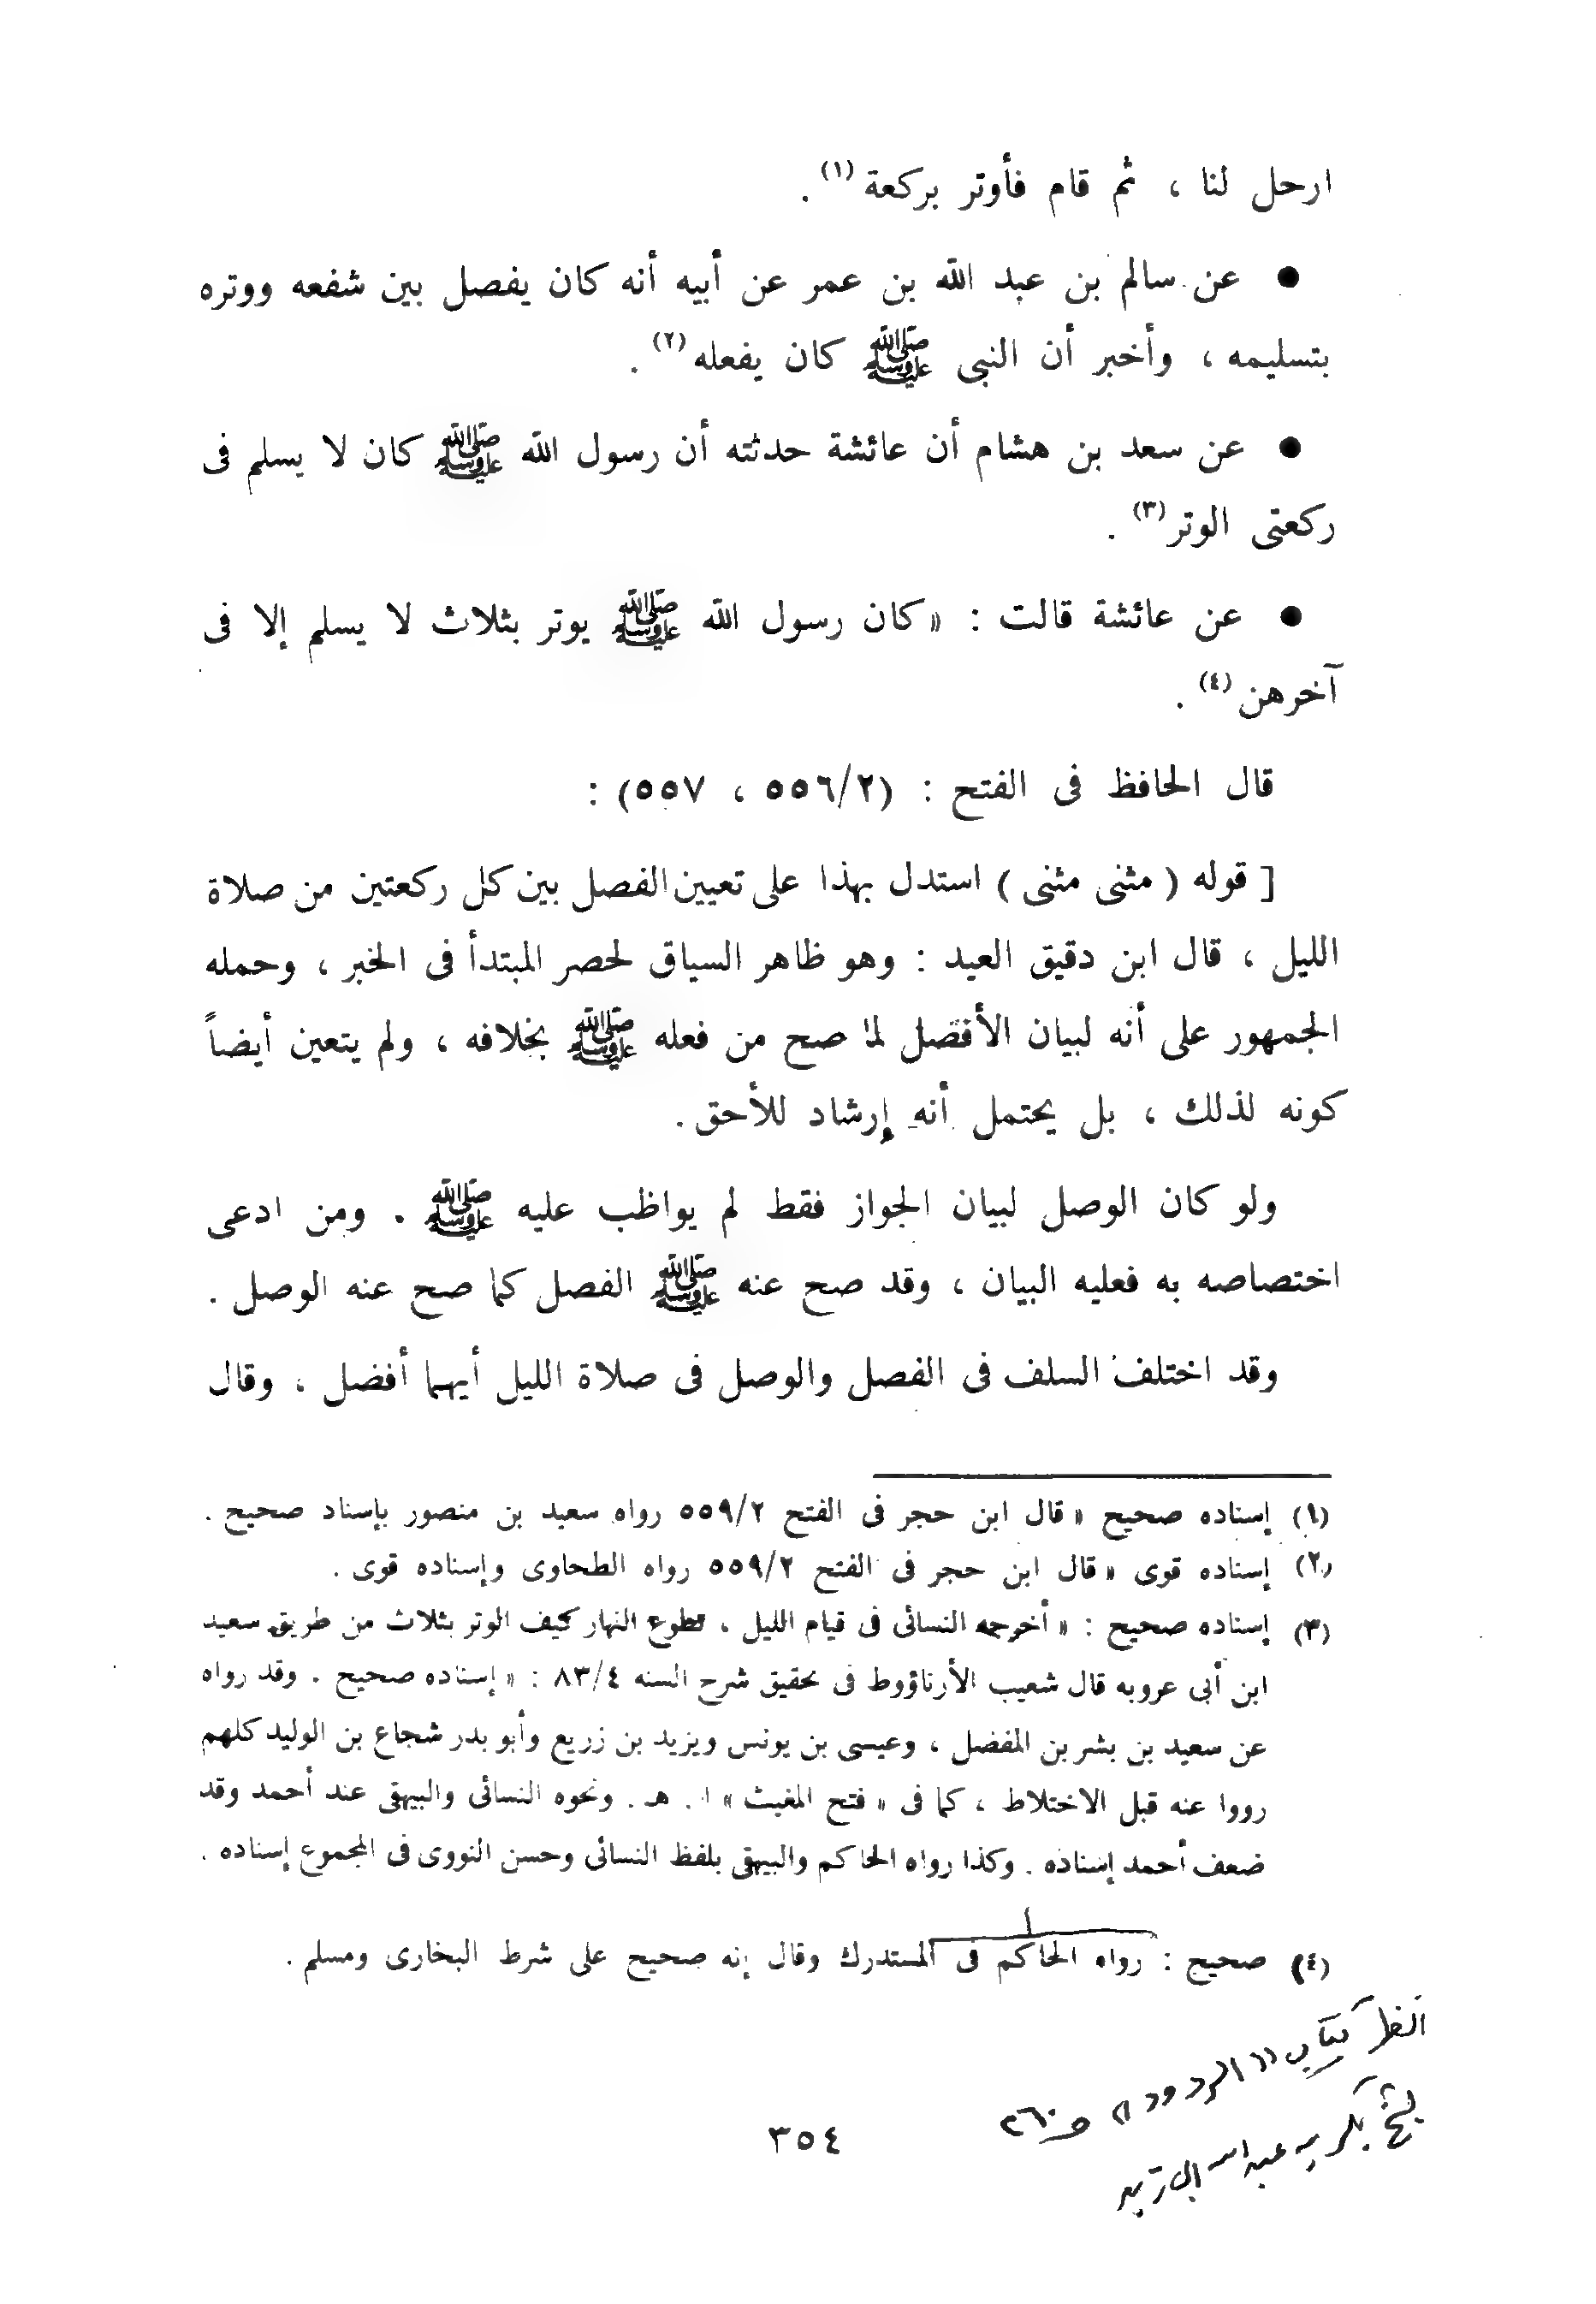 ارحل لنا ، ثم قام فأوتر بركعة (١) .
● عن سالم بن عبد الله بن عمر عن أبيه أنه كان يفصل بين شفعه ووتره
بتسليمه ، وأخبر أن النبى ﷺ كان يفعله (٢) .
● عن سعد بن هشام أن عائشة حدثته أن رسول الله ﷺ كان لا يسلم فى
ركعتى الوتر (٣) .
● عن عائشة قالت : « كان رسول الله ﷺ يوتر بثلاث لا يسلم إلا فى
آخرهن (٤) .
قال الحافظ فى الفتح : (٥٥٦/٢ ، ٥٥٧) :
[ قوله ( مثنى مثنى ) استدل بهذا على تعيين الفصل بين كل ركعتين من صلاة
الليل ، قال ابن دقيق العيد : وهو ظاهر السياق لحصر المبتدأ فى الخبر ، وحمله
الجمهور على أنه لبيان الأفضل لما صح من فعله ﷺ بخلافه ، ولم يتعين أيضاً
كونه لذلك ، بل يحتمل أنه إرشاد للأحق .
ولو كان الوصل لبيان الجواز فقط لم يواظب عليه ﷺ . ومن ادعى
اختصاصه به فعليه البيان ، وقد صح عنه ﷺ الفصل كما صح عنه الوصل .
وقد اختلف السلف فى الفصل والوصل فى صلاة الليل أيهما أفضل ، وقال
(١) إسناده صحيح « قال ابن حجر فى الفتح ٥٥٩/٢ رواه سعيد بن منصور بإسناد صحيح .
(٢) إسناده قوى « قال ابن حجر فى الفتح ٥٥٩/٢ رواه الطحاوى وإسناده قوى .
(٣) إسناده صحيح : « أخرجه النسائى فى قيام الليل ، تطوع النهار كيف الوتر بثلاث من طريق سعيد
ابن أبى عروبه قال شعيب الأرناؤوط فى تحقيق شرح السنه ٨٣/٤ : « إسناده صحيح . وقد رواه
عن سعيد بن بشر بن المفضل ، وعيسى بن يونس ويزيد بن زريع وأبو بدر شجاع بن الوليد كلهم
رووا عنه قبل الاختلاط ، كما فى « فتح المغيث » ا . هـ . ونحوه النسائى والبيهقى عند أحمد وقد
ضعف أحمد إسناده . وكذا رواه الحاكم والبيهقى بلفظ النسائى وحسن النووى فى المجموع إسناده .
(٤) صحيح : رواه الحاكم فى المستدرك وقال إنه صحيح على شرط البخارى ومسلم .
انظر كتاب « الردود » ص ٢٦٠
للشيخ بكر بن عبد الله أبى زيد
٣٥٤